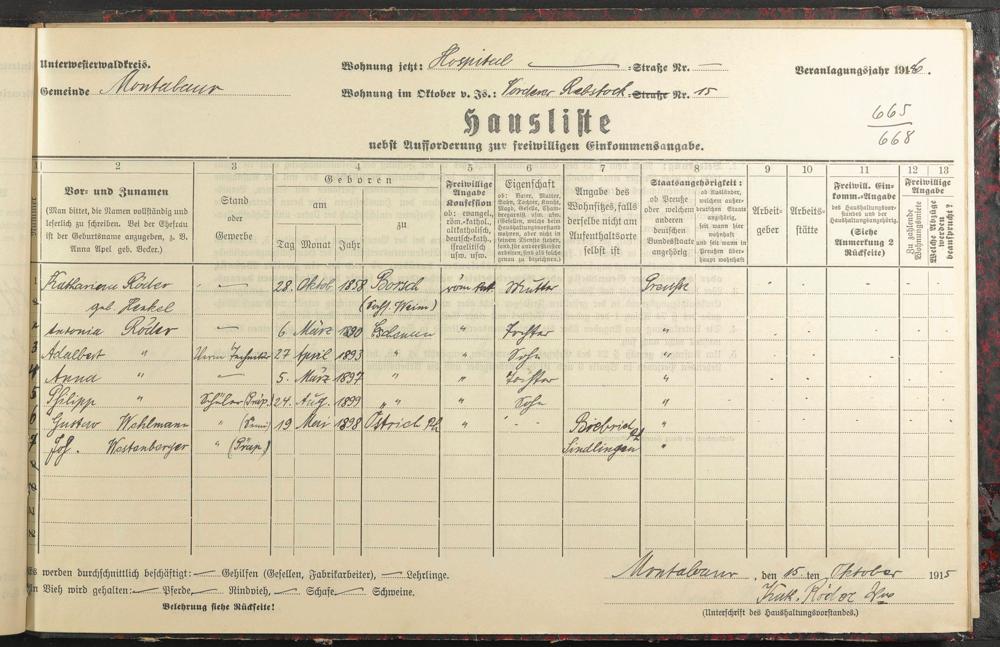 Unterwesterwaldkreis.
Wohnung jetzt: Hospital — -Straße Nr. —
Veranlagungsjahr 1916.
Gemeinde Montabaur
Wohnung im Oktober v. Js.: Vorderer Rebstock -Straße Nr. 15
665
668
Hausliste
nebst Aufforderung zur freiwilligen Einkommensangabe.
1 2 3 4 5 6 7 8 9 10 11 12 13
Nummer
Vor- und Zunamen
(Man bittet, die Namen vollständig und
leserlich zu schreiben. Bei der Ehefrau
ist der Geburtsname anzugeben, z. B.
Anna Apel geb. Becker.)
Stand
oder
Gewerbe
Geboren
am
zu
Tag Monat Jahr
Freiwillige
Angabe
Konfession
ob: evangel.,
röm.-kathol.,
altkatholisch,
deutsch-kath.,
israelitisch
usw. usw.
Eigenschaft
ob: Vater, Mutter,
Sohn, Tochter, Knecht,
Magd, Geselle,
Angabe des
Wohnsitzes, falls
derselbe nicht am
Aufenthaltsorte
selbst ist
Staatsangehörigkeit:
ob Preuße
oder welchem
anderen
deutschen
Bundesstaate
angehörig
ob Ausländer,
welchem außer-
deutschen Staate
angehörig,
seit wann hier
wohnhaft
und seit wann in
Preußen über-
haupt wohnhaft
Arbeit-
geber
Arbeits-
stätte
Freiwill. Ein-
komm.-Angabe
des Haushaltungsvor-
standes und der
Haushaltungsangehörig.
(Siehe
Anmerkung 2
Rückseite)
Freiwillige
Angabe
Zu zahlende
Wohnungsmiete
Welche Abzüge
werden
beansprucht?
1 Katharina Röder — 28. Oktob 1858 Borsch röm kat. Mutter Preuße
geb. Henkel (Sachs. Weim)
2 Antonia Röder — 6 März 1890 " Tochter "
3 Adalbert " 27 April 1893 " " Sohn "
4 Anna " — 5. März 1897 " " Tochter "
5 Philipp " Schüler (Präp.) 24. Aug. 1899 " " " Sohn "
6 Gustav Wehlmann " (Semi) 19 Mai 1898 Östrich Rh " Biebrich Rh "
7 Jos. Westenberger " (Präp.) Sindlingen "
Es werden durchschnittlich beschäftigt: — Gehilfen (Gesellen, Fabrikarbeiter), — Lehrlinge.
An Vieh wird gehalten: — Pferde — Rindvieh, — Schafe — Schweine.
Belehrung siehe Rückseite!
Montabaur, den 15. ten Oktober 1915
Kath. Röder Wwe
(Unterschrift des Haushaltungsvorstandes.)